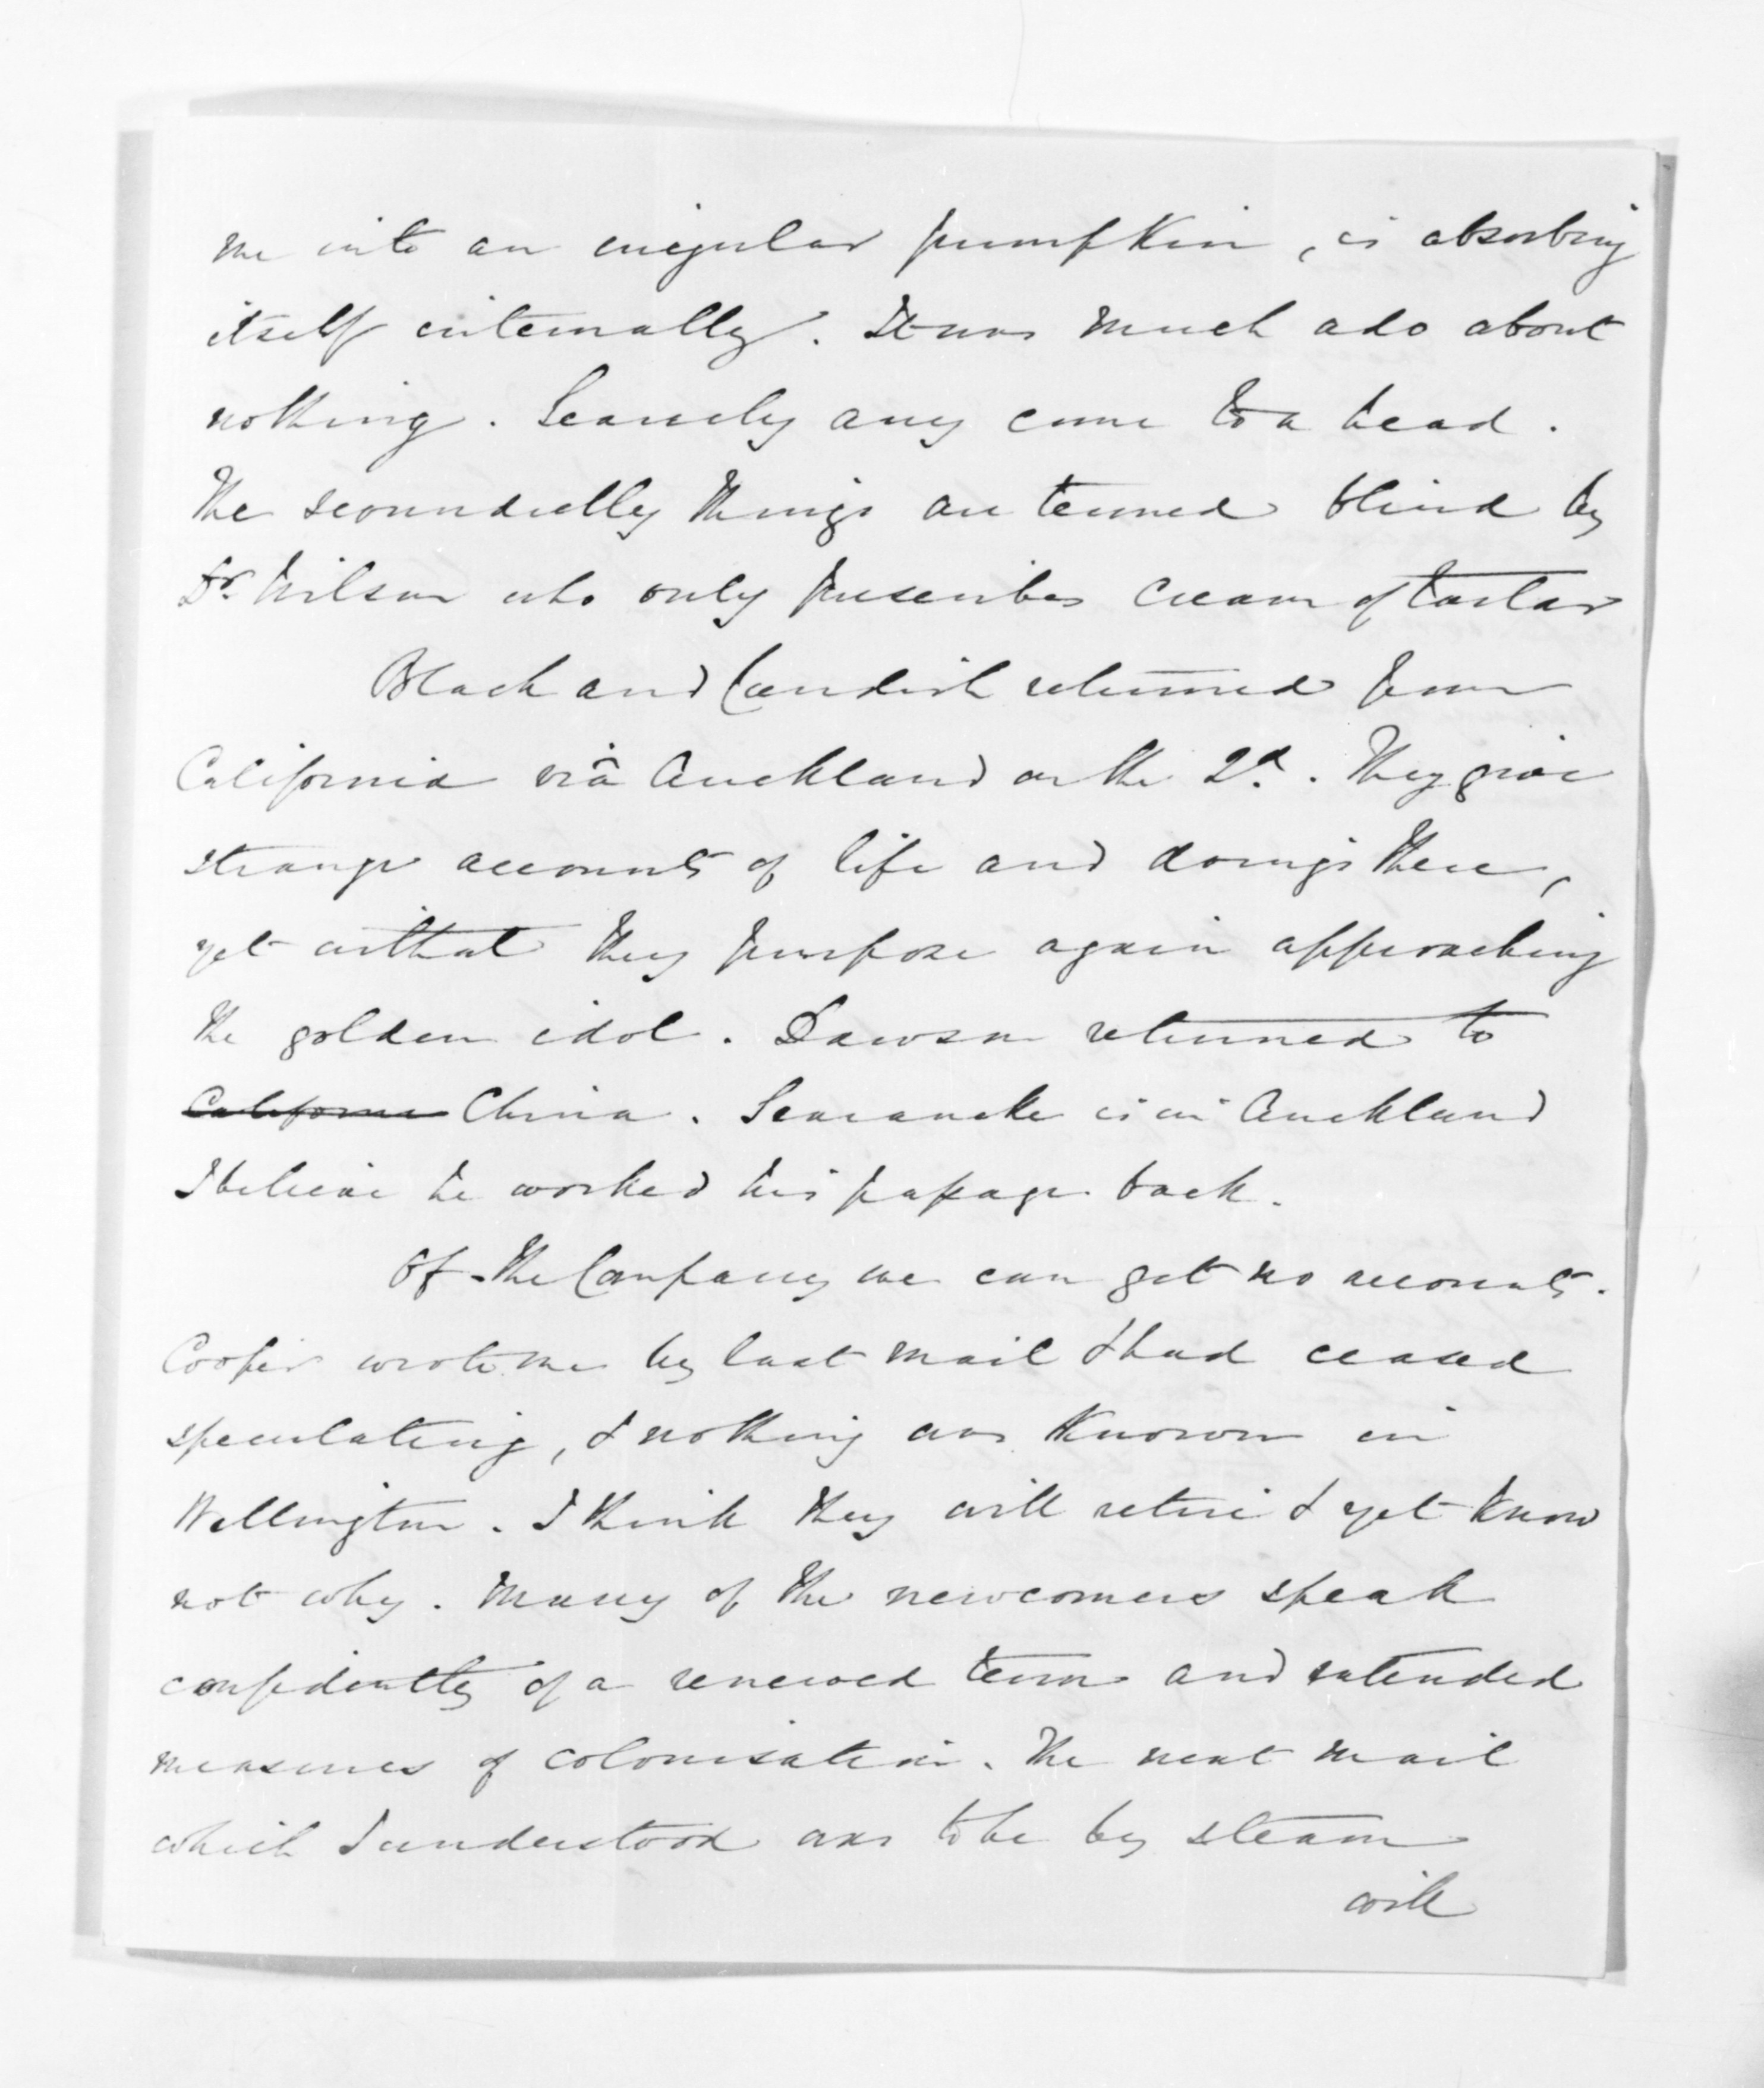 me into an irregular pumpkin, is absorbing
itself internally. It was much ado about
nothing. Scarcely any come to a head.
The scoundrelly things are termed blind by
Dr. Wilson who only prescribes Cream of tartar
Black and Cavendish returned from
California viâ Auckland on the 2d. They give
strange accounts of life and doings there,
yet withal they purpose again approaching
the golden idol. Dawson returned to
California China. Searancke is in Auckland
I believe he worked his passage back.
Of the Company we can get no accounts.
Cooper wrote me by last mail & had ceased
speculating, & nothing was known in
Wellington. I think they will retire & yet know
not why. Many of the newcomers speak
confidently of a renewed term and extended
measures of colonisation. The next mail
which I understood was to be by steam
will